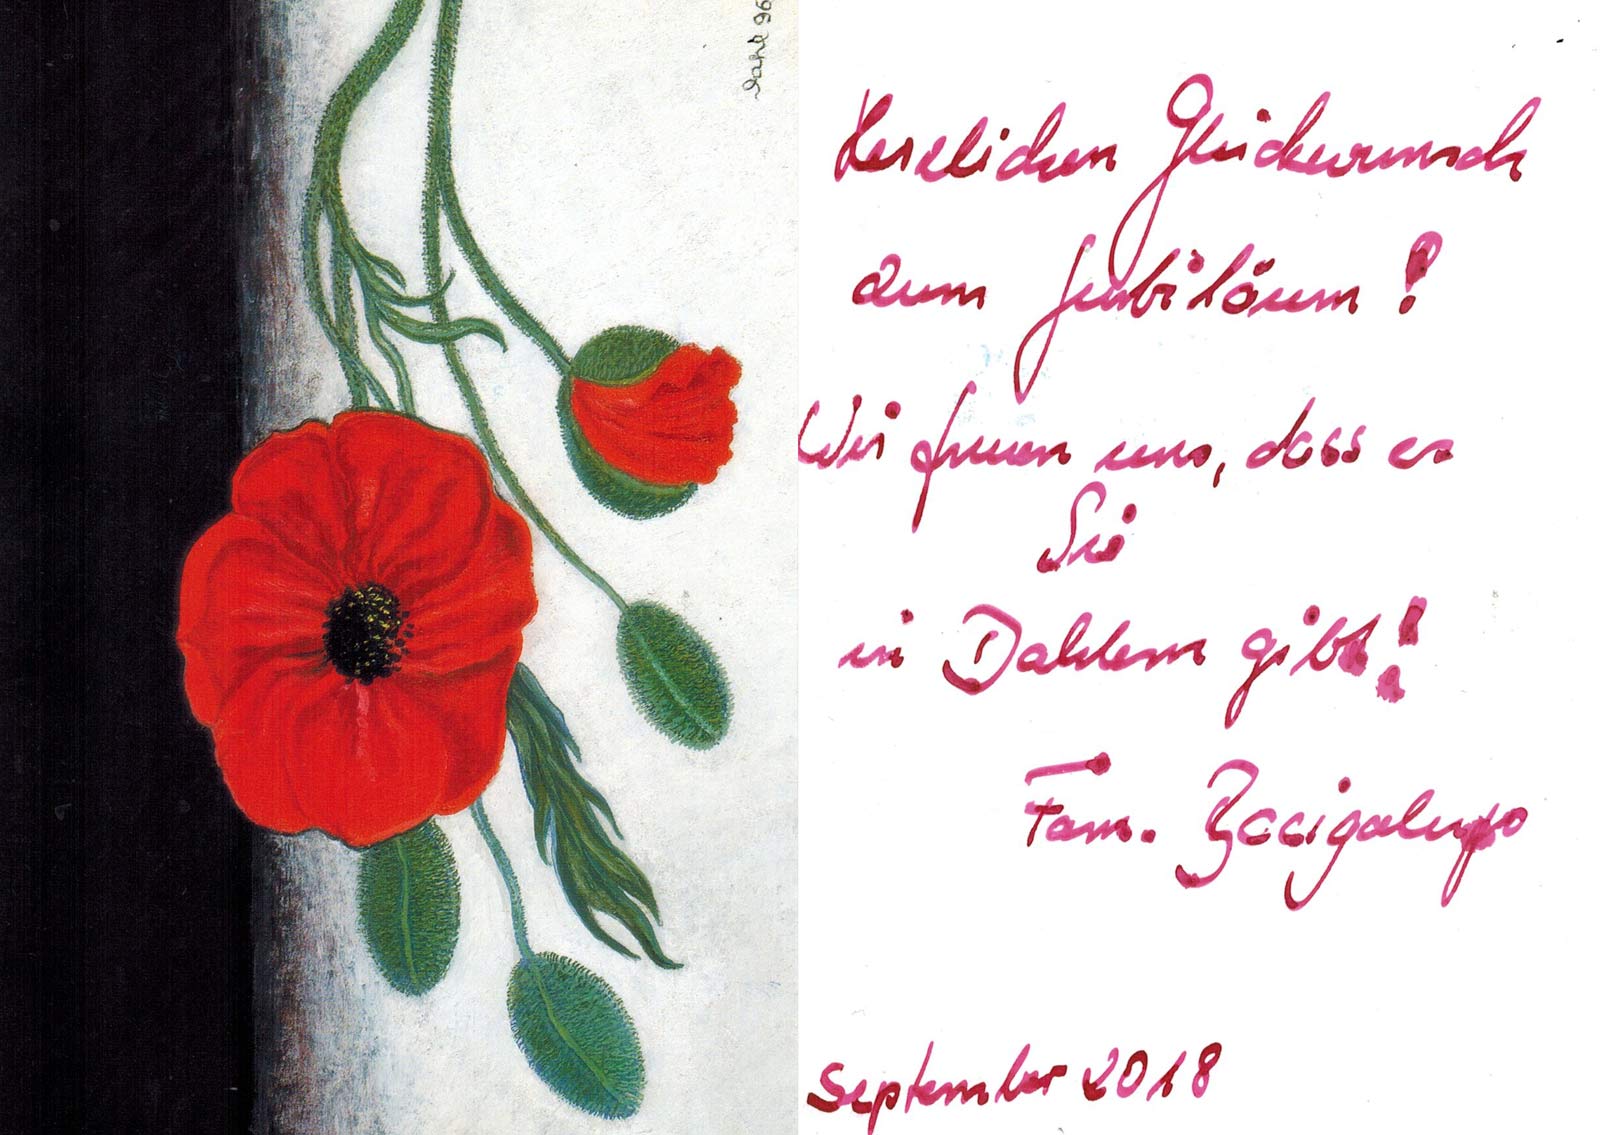 Dahl 96
Herzlichen Glückwunsch
zum Jubiläum!
Wir freuen uns, dass es
Sie
in Dahlem gibt!
Fam. Bacigalupo
September 2018